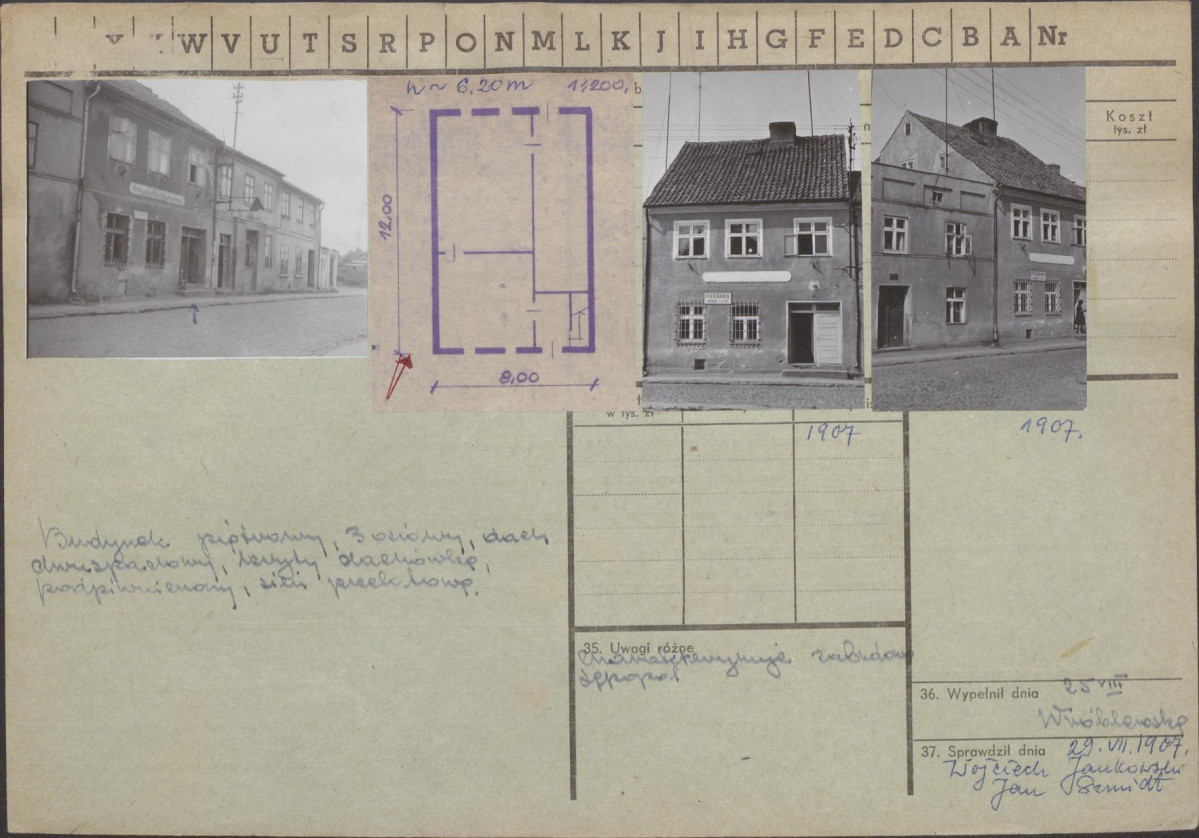 W V U T S R P O N M L K J I H G F E D C B A Nr
h ~ 6.20m 1:200.
Koszt
tys. zł
12,00
8,00
PIEKARNIA
w tys. zł
1907
1907.
Budynek piętrowy, 3 osiowy, dach
dwuspadowy, kryty dachówką,
podpiwniczony, sień przelotowa.
35. Uwagi różne
zabudowę
36. Wypełnił dnia 25 VIII
Wróblewska
37. Sprawdził dnia 29. VII. 1907.
Wojciech Jankowski
Jan Szmidt